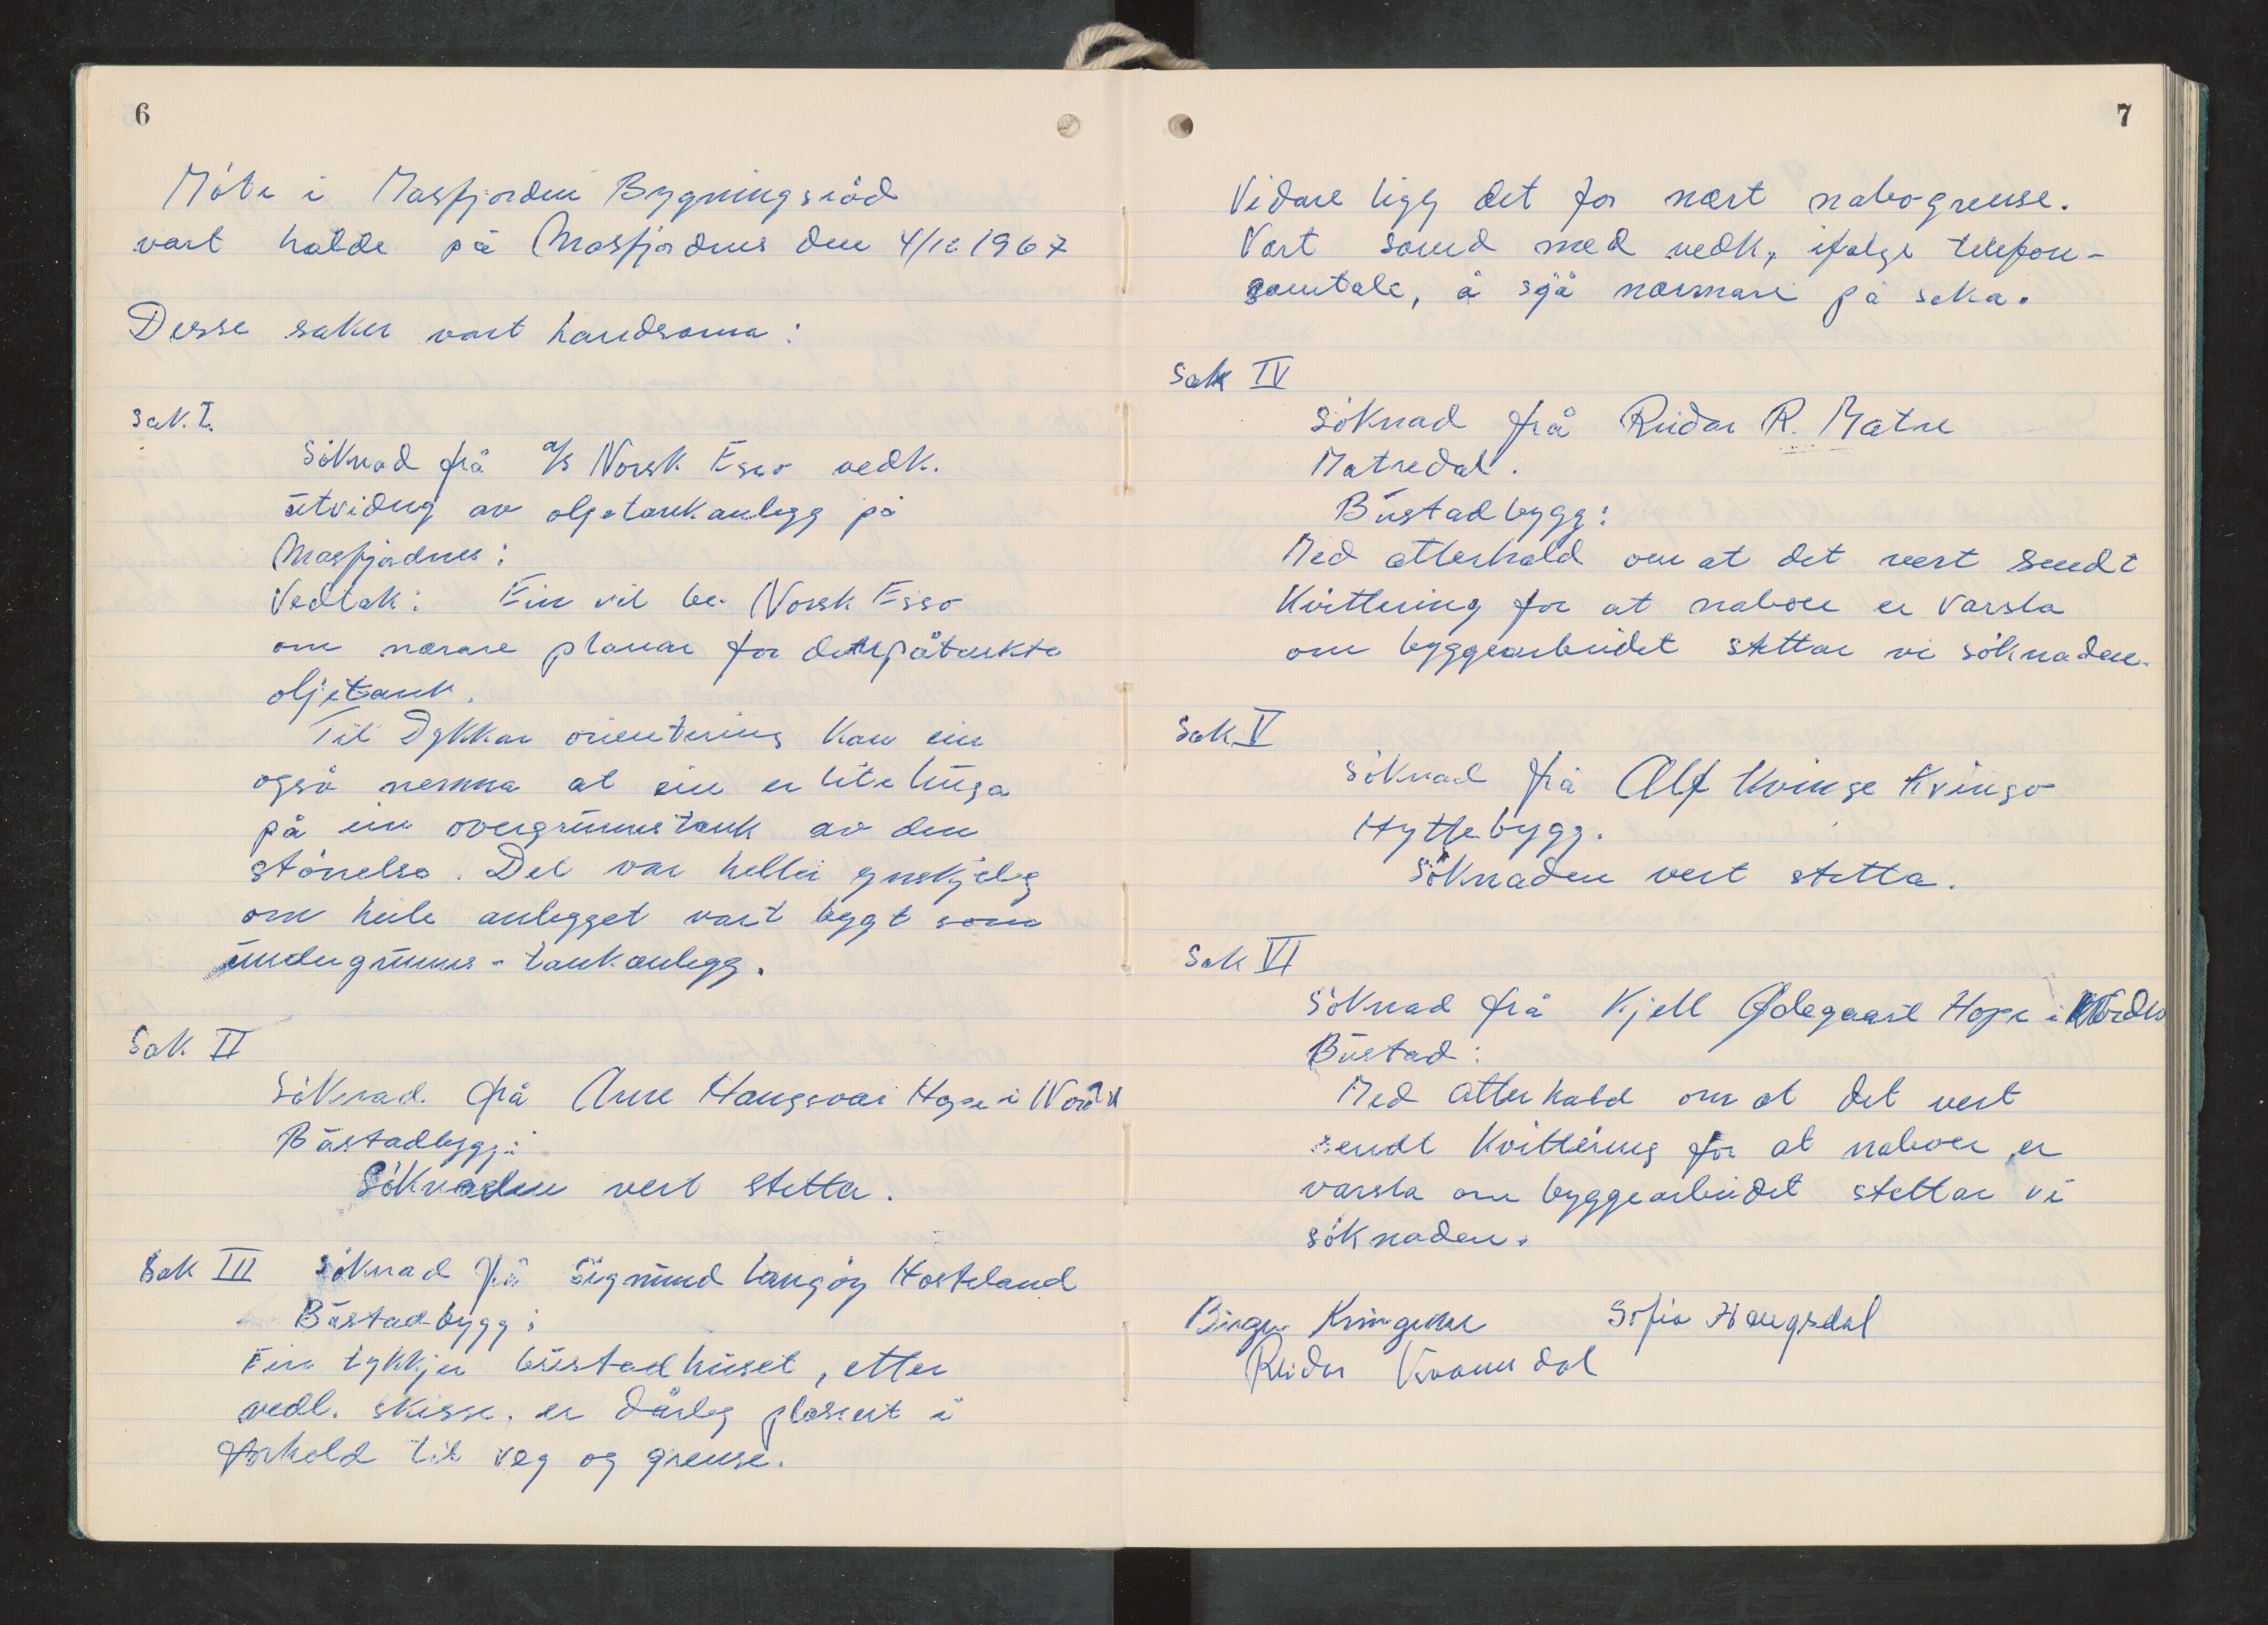 6
Møte i Masfjorden Bygningsråd
vart halde på Masfjordnes den 4/10 1967
Desse saker vart handsama:
Sak. I.
Søknad frå a/s Norsk Esso vedk.
utviding av oljetankanlegg på
Masfjordnes:
Vedtak: Ein vil be. Norsk Esso
om nærare planar for den påtenkte
oljetank.
Til Dykkar orientering kan ein
også nemna at ein er lite huga
på ein overgrunnstank av den
størrelse. Det var heller ynskjeleg
om heile anlegget vart bygt som
undergrunns-tankanlegg.
Sak II
Søknad frå Arne Haugsvær Hope i Nord
Bustadbygg:
Søknaden vert stetta.
Sak III Søknad frå Sigmund Langøy Hosteland
Bustad-bygg:
Ein tykkjer bustadhuset, etter
vedl. skisse. er dårleg plasert i
forhold til veg og grense.
7
Vidare ligg det for nært nabo-grense.
Vart samd med vedk., ifølge telefon-
samtale, å sjå nærmare på saka.
Sak IV
Søknad frå Reidar R. Matre
Matredal.
Bustadbygg:
Med atterhald om at det vert sendt
Kvittering for at naboen er varsla
om byggearbeidet stettar vi søknaden.
Sak V
Søknad frå Alf Kvinge Kvingo
Hyttebygg.
Søknaden vert stetta.
Sak VI
Søknad frå Kjell Ødegaard Hope i Norden
Bustad:
Med atterhald om at det vert
sendt Kvittering for at naboen er
varsla om byggearbeidet stettar vi
søknaden.
Birger Kringen Sofie Haugsdal
Reidar Kvamsdal